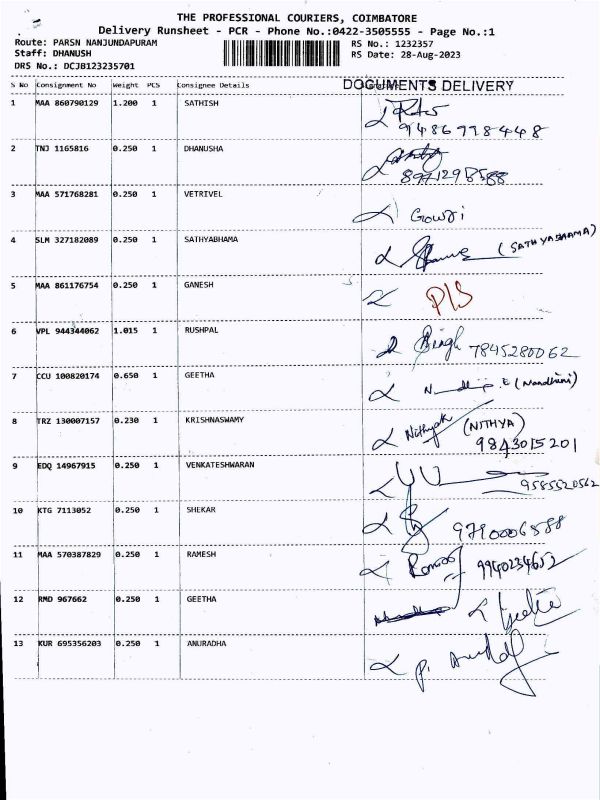 THE PROFESSIONAL COURIERS, COIMBATORE
Delivery Runsheet - PCR - Phone No.:0422-3505555 - Page No.:1
Route: PARSN NANJUNDAPURAM RS No.: 1232357
Staff: DHANUSH RS Date: 28-Aug-2023
DRS No.: DCJB123235701
S No Consignment No Weight PCS Consignee Details DOCUMENTS DELIVERY
1 MAA 860790129 1.200 1 SATHISH
9486778448
2 TNJ 1165816 0.250 1 DHANUSHA
8971298588
3 MAA 571768281 0.250 1 VETRIVEL
Gowri
4 SLM 327182089 0.250 1 SATHYABHAMA (SATHYABAAMA)
5 MAA 861176754 0.250 1 GANESH P/S
6 VPL 944344062 1.015 1 RUSHPAL
Singh 7845280062
7 CCU 100820174 0.650 1 GEETHA (Nandhini)
8 TRZ 130007157 0.230 1 KRISHNASWAMY (NITHYA)
9843015201
9 EDQ 14967915 0.250 1 VENKATESHWARAN
9585520562
10 KTG 7113052 0.250 1 SHEKAR
9790006588
11 MAA 570387829 0.250 1 RAMESH
9940234652
12 RMD 967662 0.250 1 GEETHA Geetha
13 KUR 695356203 0.250 1 ANURADHA